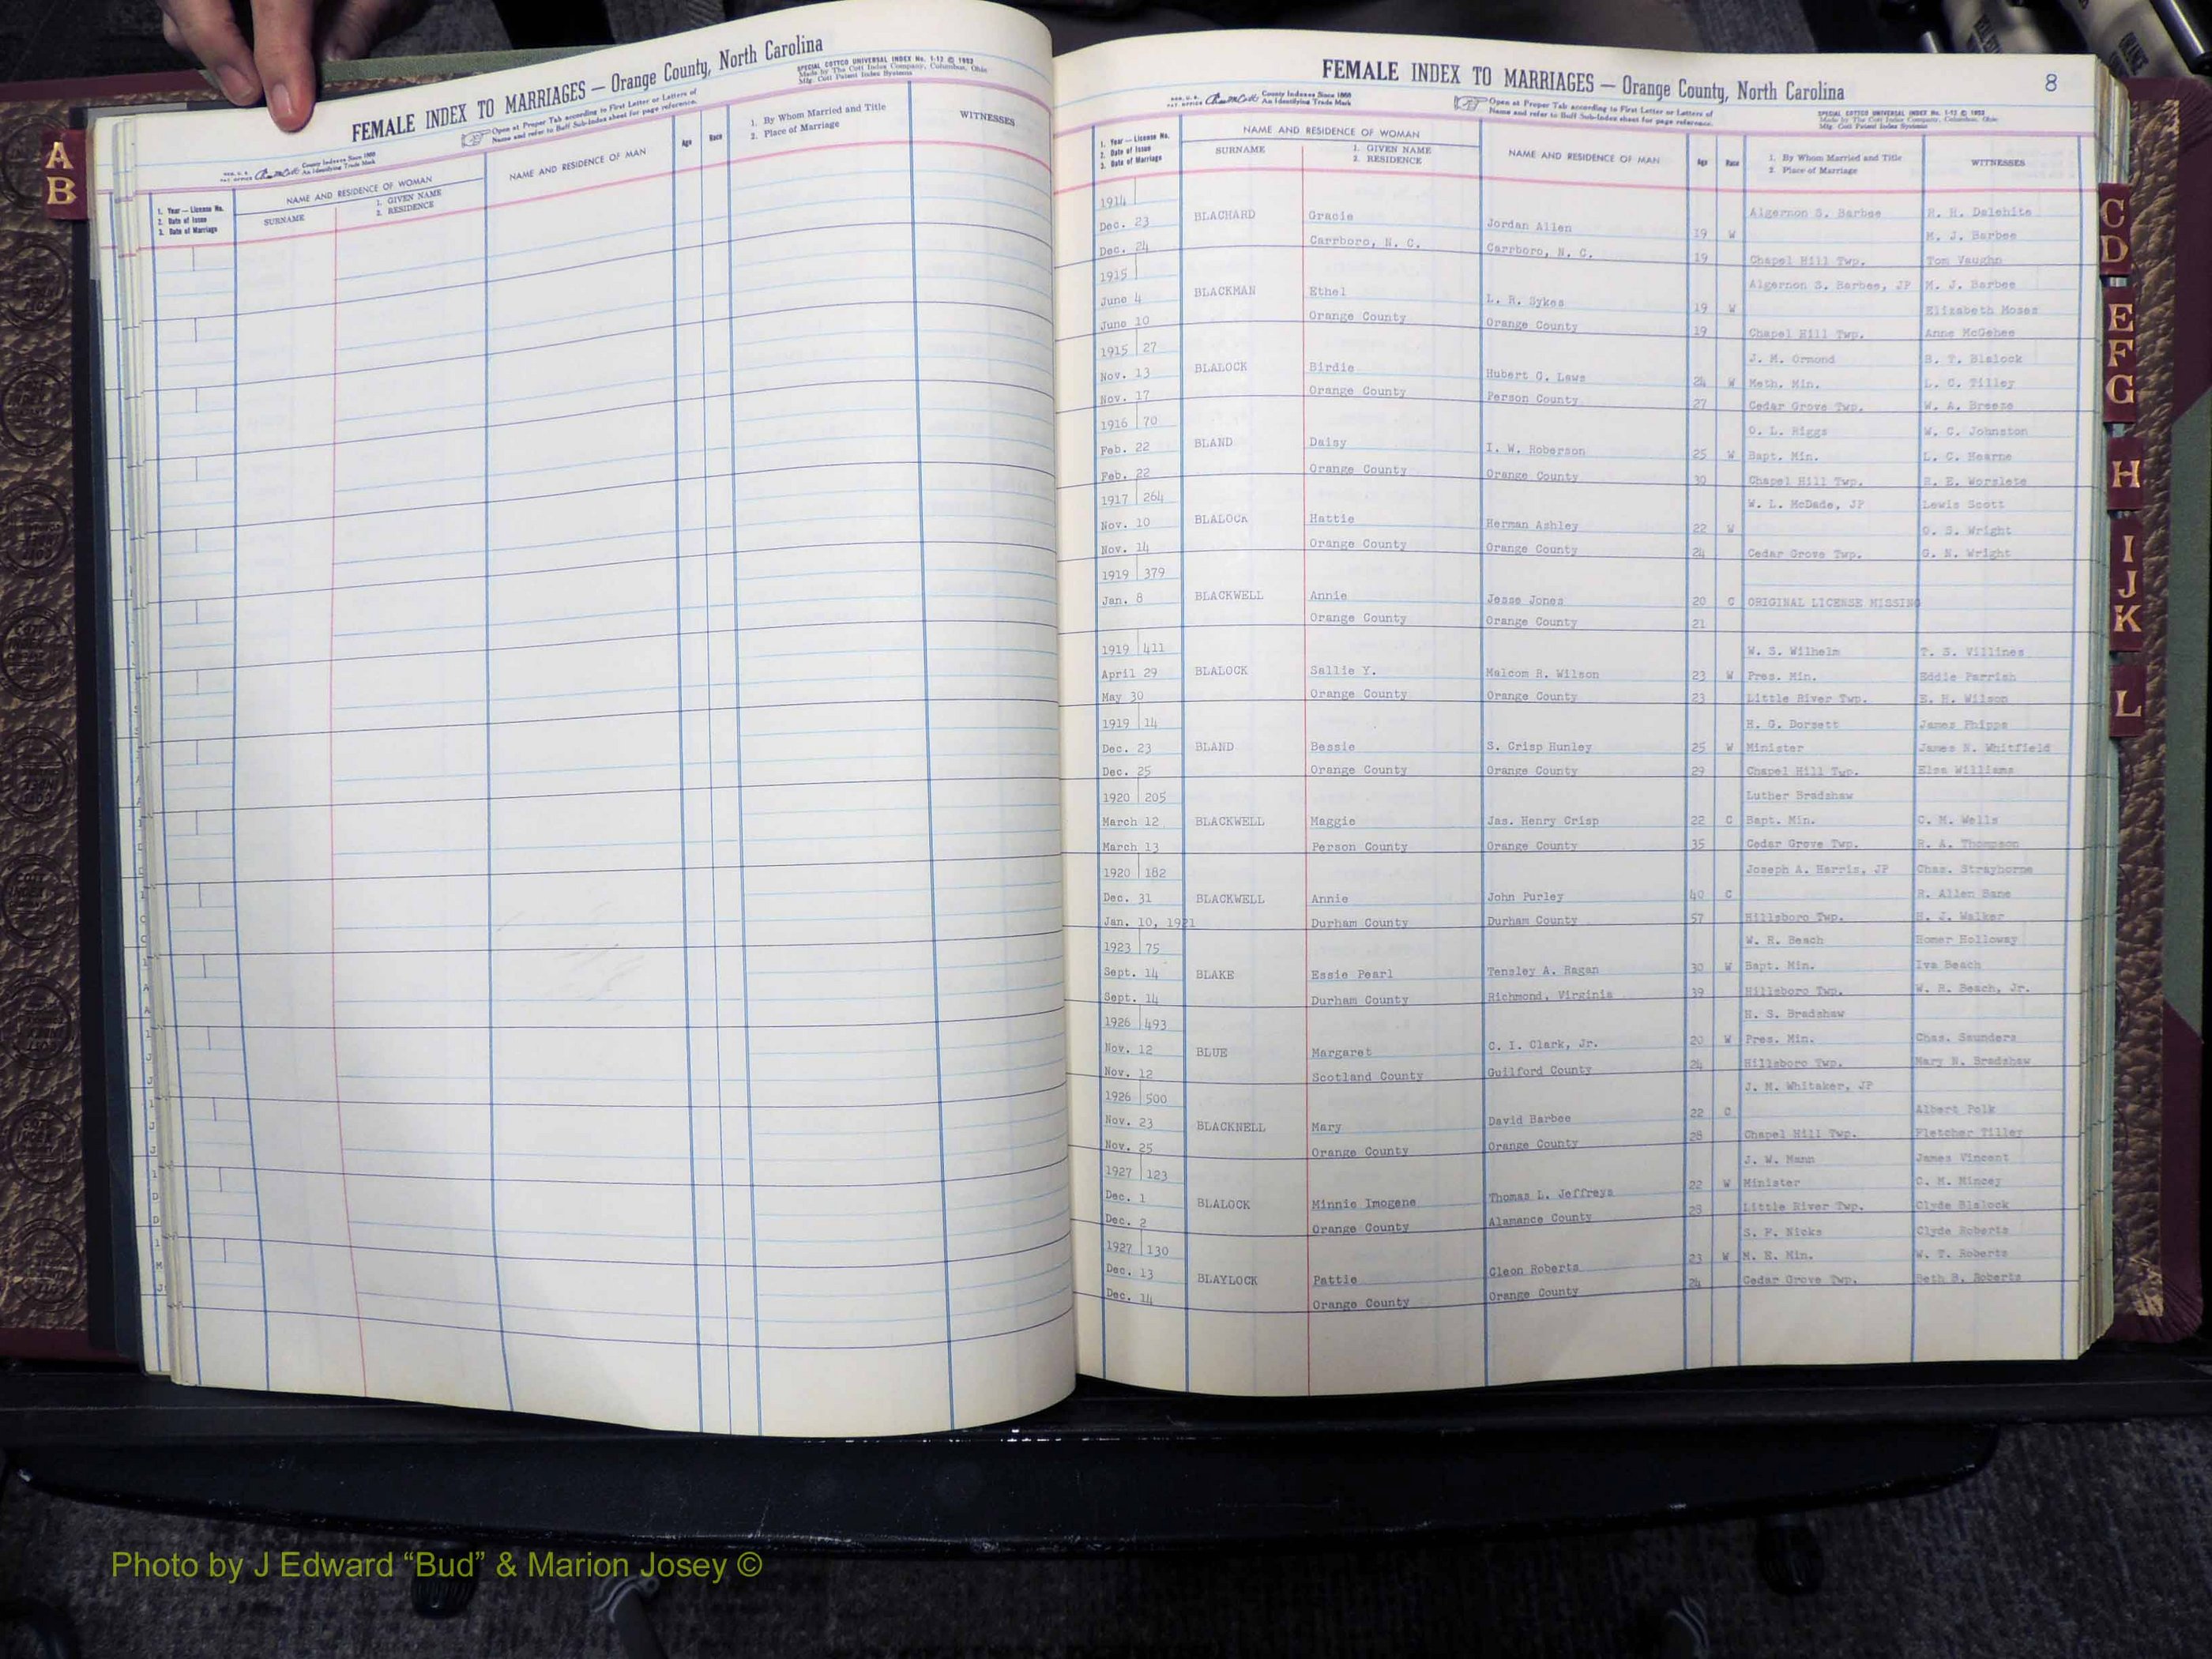 FEMALE INDEX TO MARRIAGES — Orange County, North Carolina
County Indexes Since 1888
An Identifying Trade Mark
Open at Proper Tab according to First Letter or Letters of
Name and refer to Buff Sub-Index sheet for page reference.
SPECIAL COTTCO UNIVERSAL INDEX No. 1-12 © 1953
Made by The Cott Index Company, Columbus, Ohio
Mfg. Cott Patent Index Systems
1. Year — License No.
2. Date of Issue
3. Date of Marriage
NAME AND RESIDENCE OF WOMAN
SURNAME
1. GIVEN NAME
2. RESIDENCE
NAME AND RESIDENCE OF MAN
Age
Race
1. By Whom Married and Title
2. Place of Marriage
WITNESSES
FEMALE INDEX TO MARRIAGES — Orange County, North Carolina 8
County Indexes Since 1888
An Identifying Trade Mark
Open at Proper Tab according to First Letter or Letters of
Name and refer to Buff Sub-Index sheet for page reference.
SPECIAL COTTCO UNIVERSAL INDEX No. 1-12 © 1953
Made by The Cott Index Company, Columbus, Ohio
Mfg. Cott Patent Index Systems
1. Year — License No.
2. Date of Issue
3. Date of Marriage
NAME AND RESIDENCE OF WOMAN
SURNAME
1. GIVEN NAME
2. RESIDENCE
NAME AND RESIDENCE OF MAN
Age
Race
1. By Whom Married and Title
2. Place of Marriage
WITNESSES
1914 Algernon S. Barbee R. H. Dalehite
Dec. 23 BLACHARD Gracie Jordan Allen 19 W M. J. Barbee
Dec. 24 Carrboro, N. C. Carrboro, N. C. 19 Chapel Hill Twp. Tom Vaughn
1915 Algernon S. Barbee, JP M. J. Barbee
June 4 BLACKMAN Ethel L. R. Sykes 19 W Elizabeth Moses
June 10 Orange County Orange County 19 Chapel Hill Twp. Anne McGehee
1915 27 J. M. Ormond B. T. Blalock
Nov. 13 BLALOCK Birdie Hubert G. Laws 24 W Meth. Min. L. C. Tilley
Nov. 17 Orange County Person County 27 Cedar Grove Twp. W. A. Breeze
1916 70 O. L. Riggs W. C. Johnston
Feb. 22 BLAND Daisy I. W. Roberson 25 W Bapt. Min. L. C. Hearne
Feb. 22 Orange County Orange County 30 Chapel Hill Twp. E. Worslete
1917 264 W. L. McDade, JP Lewis Scott
Nov. 10 BLALOCK Hattie Herman Ashley 22 W O. S. Wright
Nov. 14 Orange County Orange County 24 Cedar Grove Twp. G. N. Wright
1919 379
Jan. 8 BLACKWELL Annie Jesse Jones 20 C ORIGINAL LICENSE MISSING
Orange County Orange County 21
1919 411 W. S. Wilhelm T. S. Villines
April 29 BLALOCK Sallie Y. Malcom R. Wilson 23 W Pres. Min. Eddie Parrish
May 30 Orange County Orange County 23 Little River Twp. E. H. Wilson
1919 14 H. G. Dorsett James Phipps
Dec. 23 BLAND Bessie S. Crisp Hunley 25 W Minister James N. Whitfield
Dec. 25 Orange County Orange County 29 Chapel Hill Twp. Elsa Williams
1920 205 Luther Bradshaw
March 12 BLACKWELL Maggie Jas. Henry Crisp 22 C Bapt. Min. C. M. Wells
March 13 Person County Orange County 35 Cedar Grove Twp. R. A. Thompson
1920 182 Joseph A. Harris, JP Chas. Strayhorne
Dec. 31 BLACKWELL Annie John Purley 40 C R. Allen Bane
Jan. 10, 1921 Durham County Durham County 57 Hillsboro Twp. H. J. Walker
1923 75 W. R. Beach Homer Holloway
Sept. 14 BLAKE Essie Pearl Tensley A. Ragan 30 W Bapt. Min. Iva Beach
Sept. 14 Durham County Richmond, Virginia 39 Hillsboro Twp. W. R. Beach, Jr.
1926 493 H. S. Bradshaw
Nov. 12 BLUE Margaret C. I. Clark, Jr. 20 W Pres. Min. Chas. Saunders
Nov. 12 Scotland County Guilford County 24 Hillsboro Twp. Mary N. Bradshaw
1926 500 J. M. Whitaker, JP
Nov. 23 BLACKNELL Mary David Barbee 22 C Albert Polk
Nov. 25 Orange County Orange County 28 Chapel Hill Twp. Fletcher Tilley
1927 123 J. W. Mann James Vincent
Dec. 1 BLALOCK Minnie Imogene Thomas L. Jeffreys 22 W Minister C. M. Mincey
Dec. 2 Orange County Alamance County 28 Little River Twp. Clyde Blalock
1927 130 S. F. Nicks Clyde Roberts
Dec. 13 BLAYLOCK Pattie Cleon Roberts 23 W M. E. Min. W. T. Roberts
Dec. 14 Orange County Orange County 24 Cedar Grove Twp. Beth B. Roberts
A
B
C
D
E
F
G
H
I
J
K
L
Photo by J Edward “Bud” & Marion Josey ©